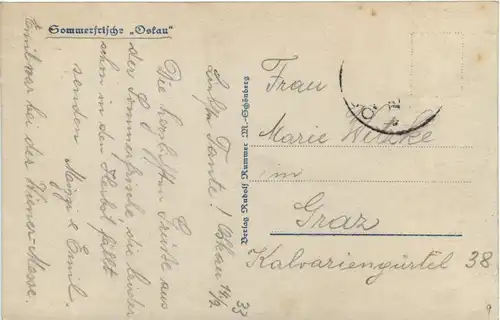 Sommerfrische „Oskau"
Oskau 19/9 33
Liebste Tante!
Die herzlichsten Grüße aus
der Sommerfrische die leider
schon in den Herbst fällt
senden Mizzi & Emil.
Emil war bei der Wiener-Messe.
Verlag Rudolf Rummer M.-Schönberg
Frau
Marie Witzke
in
Graz
Kalvariengürtel 38